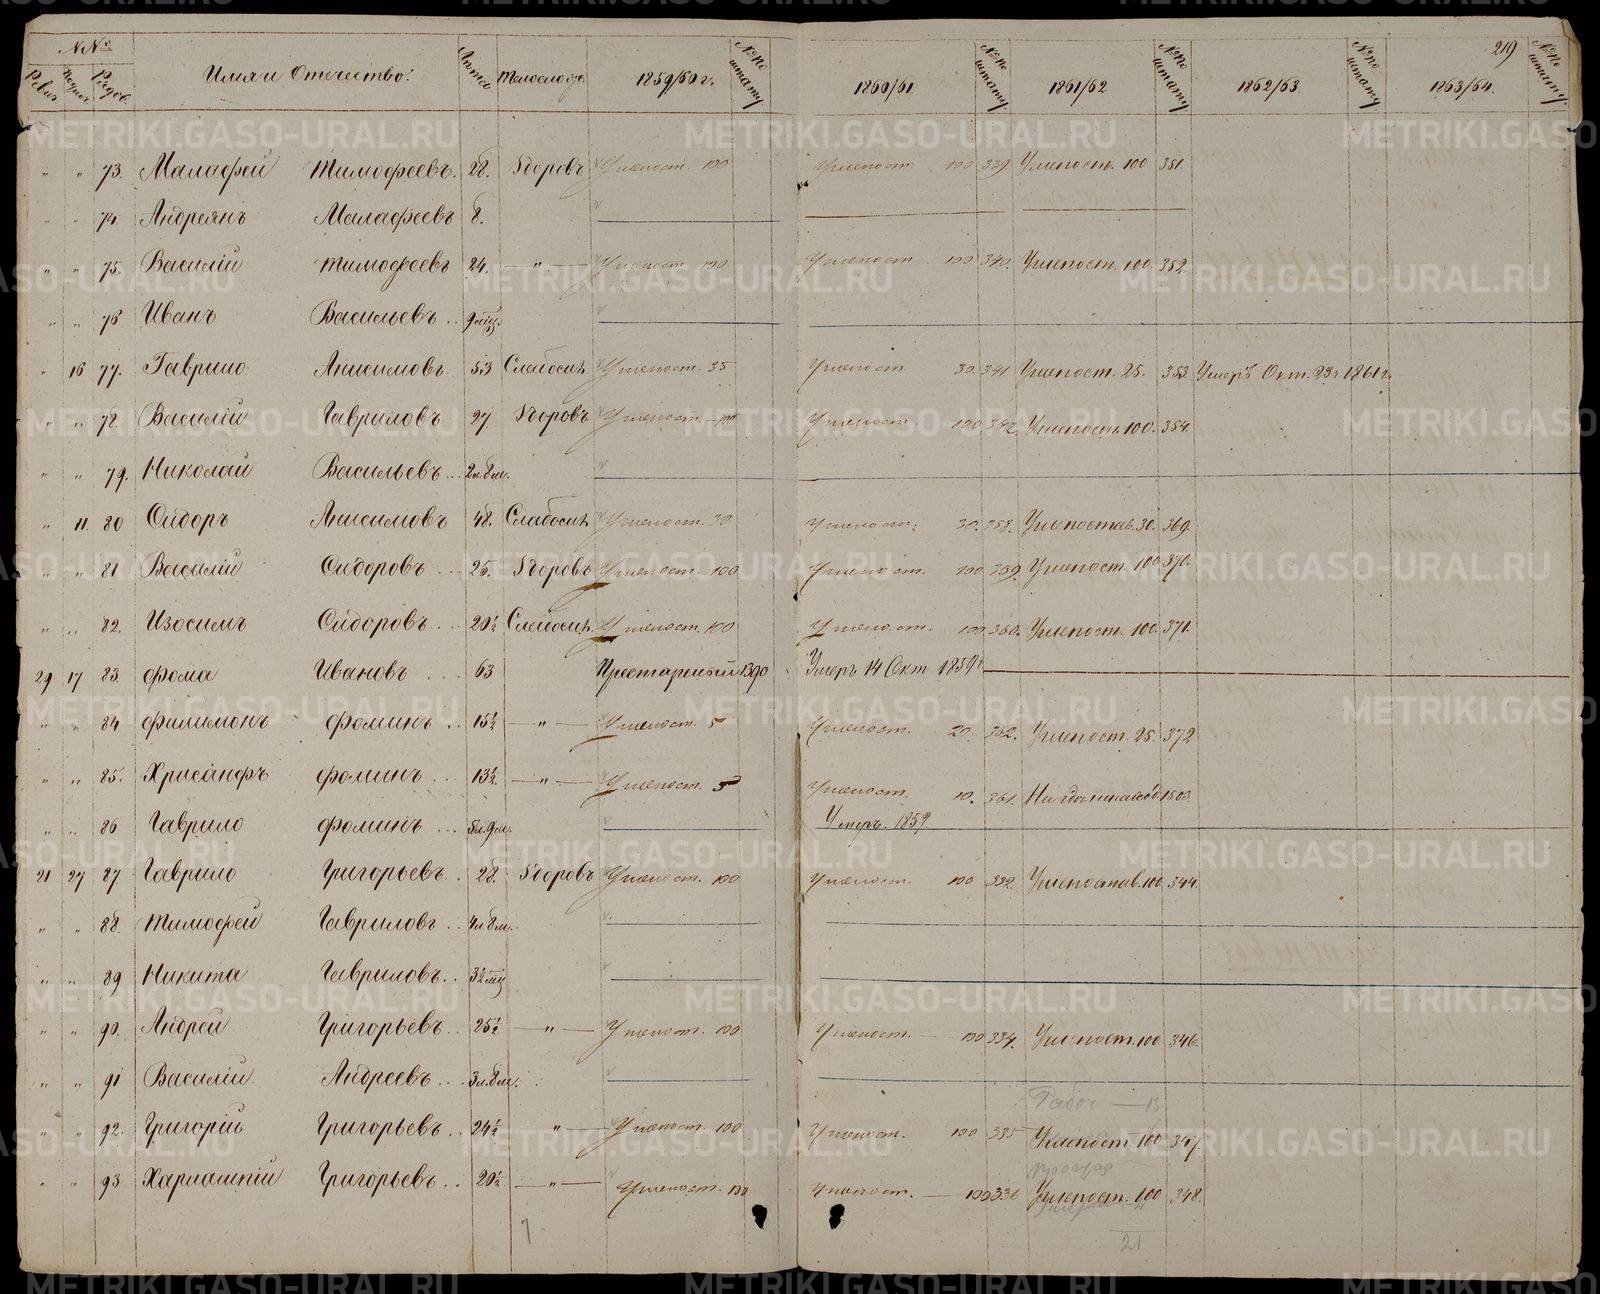 219
№№ Имя и Отечество: Лѣта Телослож. 1859/60 г. №№ по штату 1860/61 №№ по штату 1861/62 №№ по штату 1862/63 №№ по штату 1863/64. №№ по штату
" " 73. Малафей Тимофеевъ. 28. Здоровъ Углепост. 100 Углепост. 100 339. Углепост. 100 351.
" " 74. Андреянъ Малафеевъ 8.
" " 75. Василій Тимофеевъ 24. — " — Углепост. 100 Углепост. 100 340. Углепост. 100. 352.
" " 76 Иванъ Васильевъ ..
" 16 77. Гаврило Анисимовъ. 53 Слабосил. Углепост. 35 Углепост. 30. 341. Углепост. 25. 353. Умеръ Окт. 23 1861 г.
" " 78. Василій Гавриловъ 27 Здоровъ Углепост. 100 Углепост. 100 342. Углепост. 100. 354.
" " 79. Николай Васильевъ ... 2л.8м.
" 11. 80 Сидоръ Анисимовъ 48. Слабосил. Углепост. 30 Углепост. 30. 358. Углепостав. 30. 369.
" " 81 Василій Сидоровъ ... 25. Здоровъ Углепост. 100 Углепост. 100 359. Углепост. 100 370.
" " 82. Изосимъ Сидоровъ ... 20½ Слабосил. Углепост. 100 Углепост. 100 360. Углепост. 100. 371.
29 17 83. Фома Ивановъ ... 63 Престарелый 1390 Умеръ 14 Окт 1859 г
" " 84 Филимонъ Фоминъ .. 15½ — " — Углепост. 5 Углепост. 20. 362. Углепост. 25. 372
" " 85. Хрисанфъ Фоминъ ... 13½ — " — Углепост. 5 Углепост. 10. 361.
" " 86 Гаврило Фоминъ ... 5л.9м. Умеръ. 1859.
21 27 87 Гаврило Григорьевъ. 28. Здоровъ Углепост. 100 Углепост. 100 332. Углепостав. 100. 344.
" " 88. Тимофей Гавриловъ .. 4л 8м.
" " 89 Никита Гавриловъ ..
" " 90. Андрей Григорьевъ .. 25½ — " — Углепост. 100 Углепост. 100 334. Углепост. 100 346.
" " 91 Василій Андреевъ ... 3л.8м.
Рабоч — 13
" " 92. Григорій Григорьевъ .. 24½ — " — Углепост. 100 Углепост. 100 335 Углепост. 100 347.
" " 93 Харлампій Григорьевъ .. 20½ — " — Углепост. 100 Углепост. 100 336 Углепост. 100 348.
7.
21
METRIKI.GASO-URAL.RU